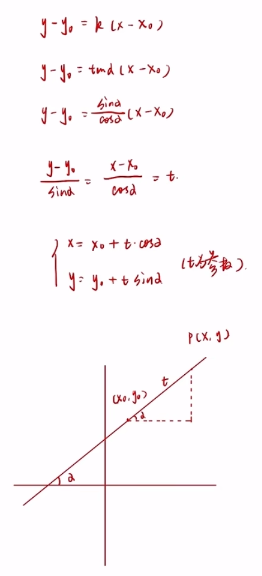 y-y₀ = k(x-x₀)
y-y₀ = tanα(x-x₀)
y-y₀ = sinα/cosα (x-x₀)
y-y₀/sinα = x-x₀/cosα = t.
{ x = x₀ + t·cosα
y = y₀ + t sinα (t为参数).
P(x,y)
t
(x₀,y₀)
α
α